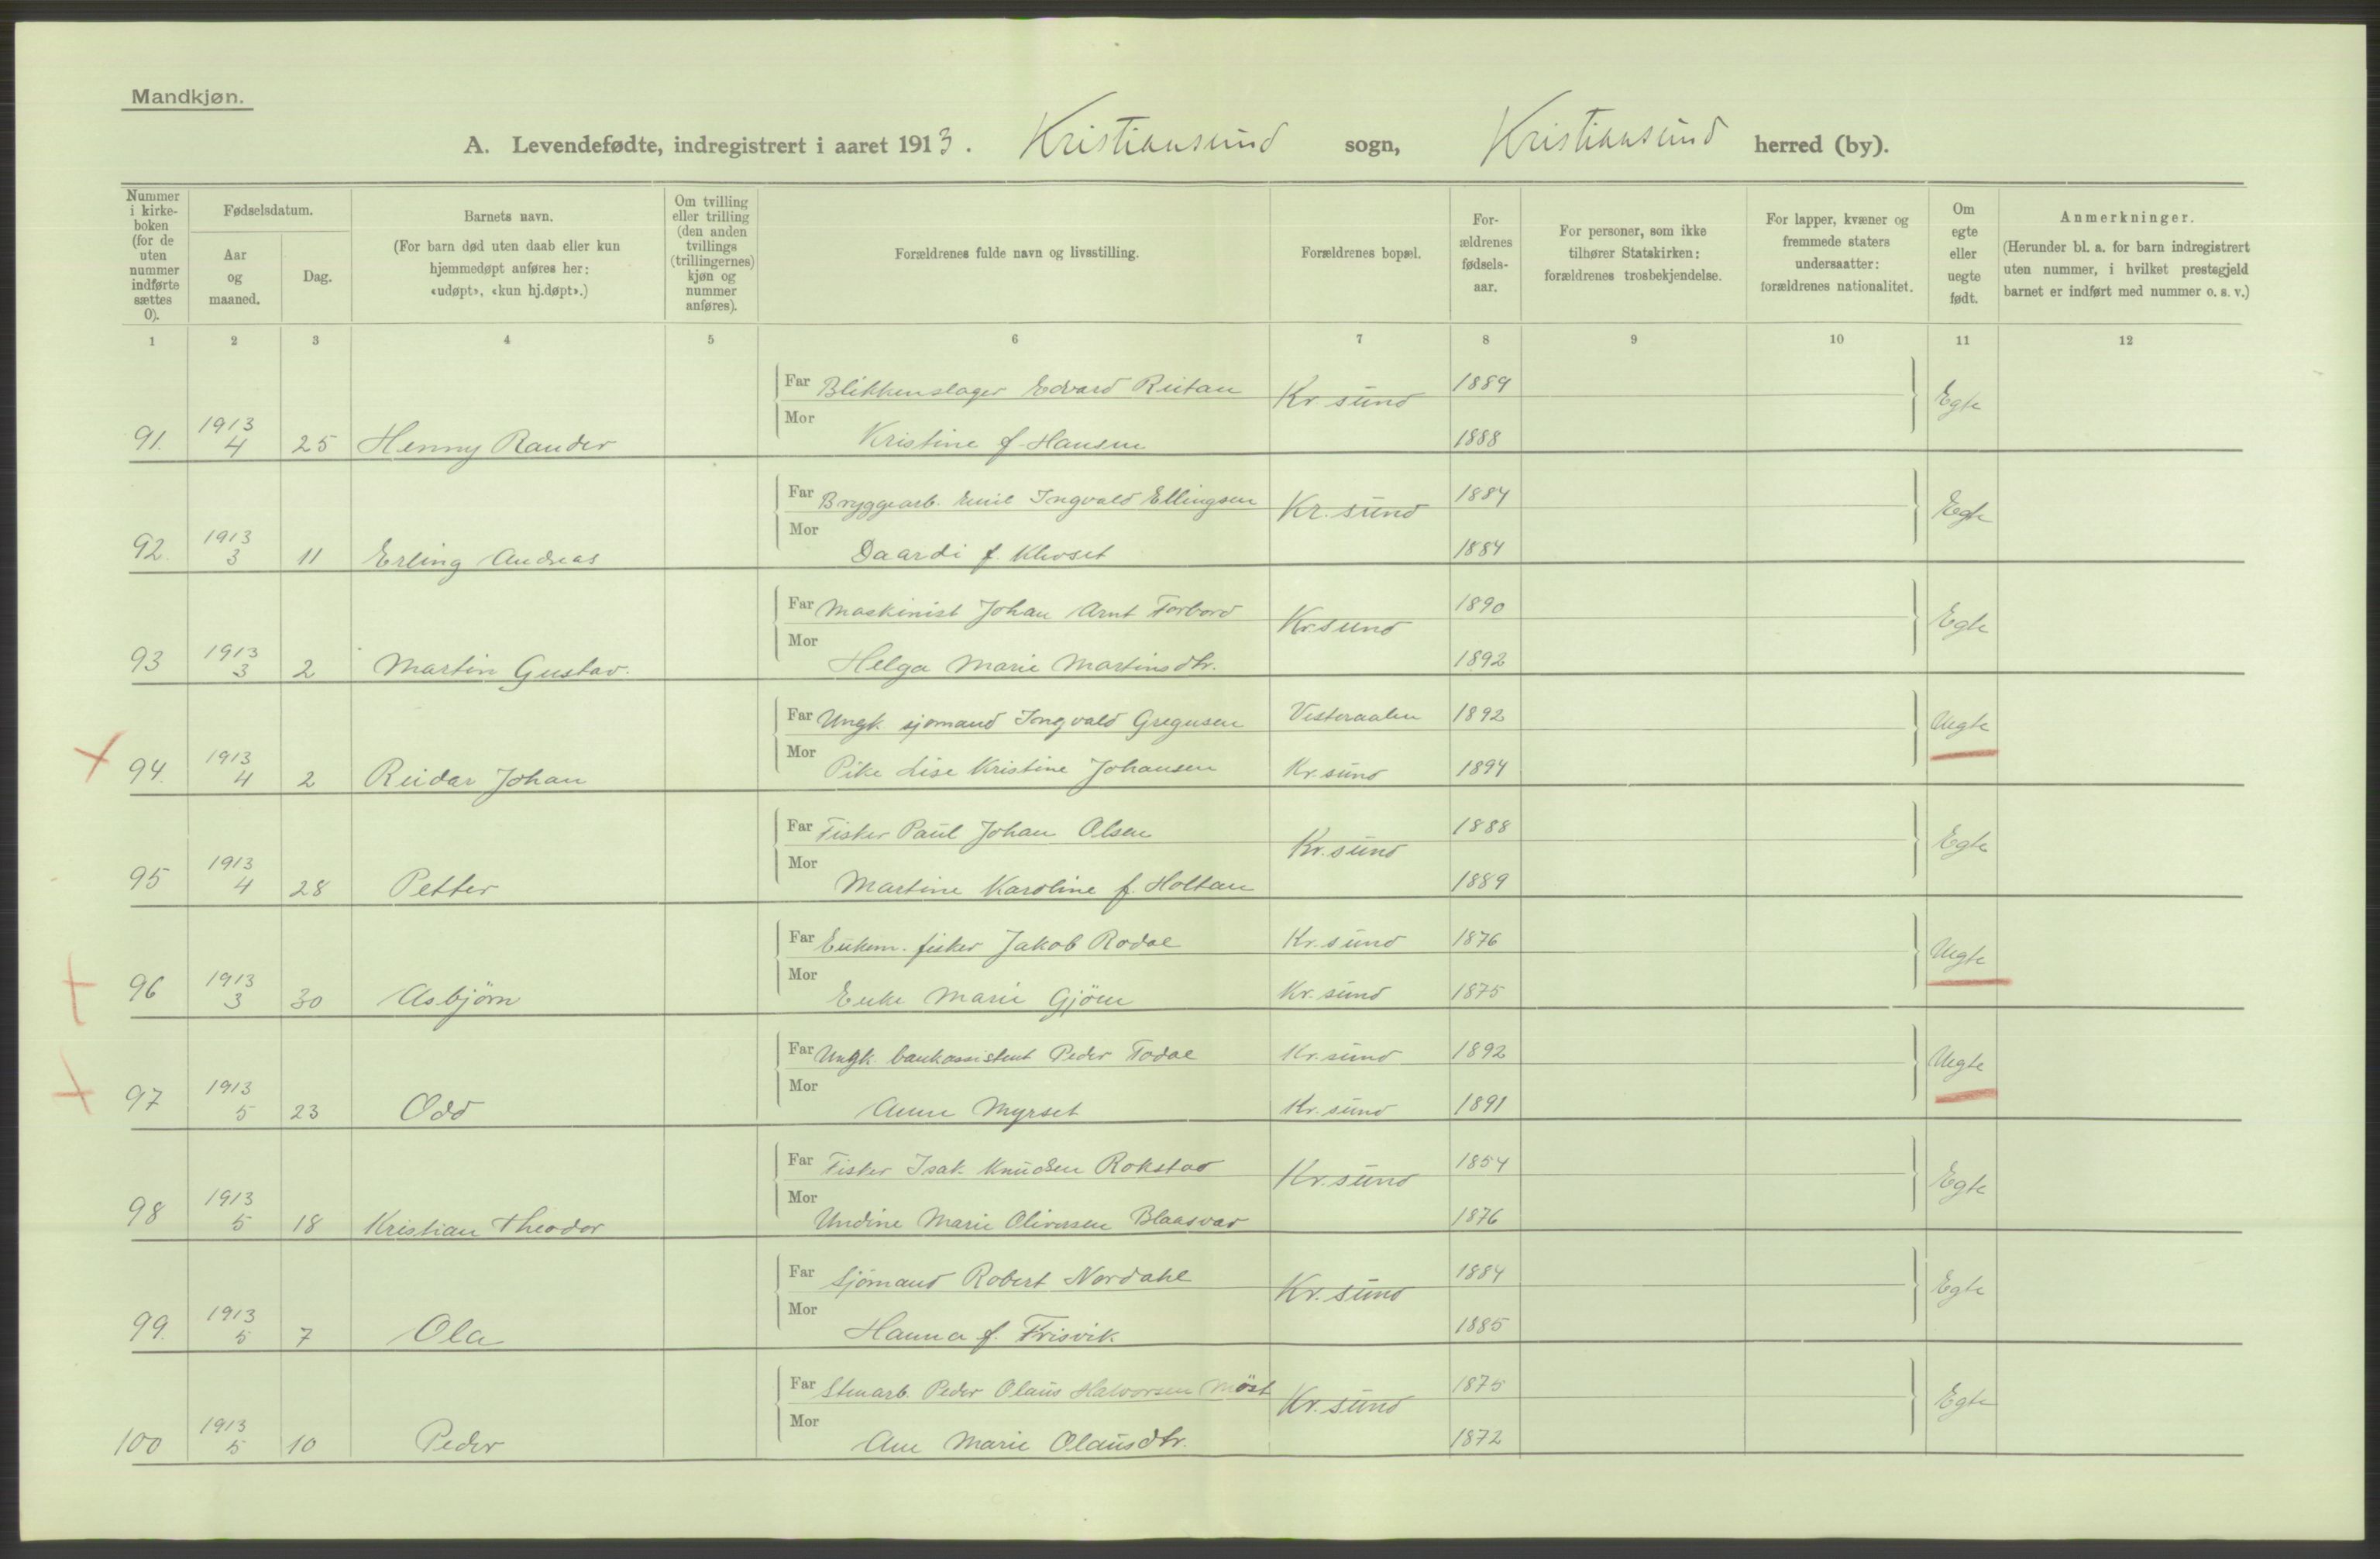 Mandkjøn.
A. Levendefødte, indregistrert i aaret 1913. Kristiansund sogn, Kristiansund herred (by).
Nummer i kirke- boken (for de uten nummer indførte sættes 0).
Fødselsdatum.
Aar og maaned.
Dag.
Barnets navn.
(For barn død uten daab eller kun hjemmedøpt anføres her: «udøpt», «kun hj.døpt».)
Om tvilling eller trilling (den anden tvillings (trillingernes) kjøn og nummer anføres).
Forældrenes fulde navn og livsstilling.
Forældrenes bopæl.
For- ældrenes fødsels- aar.
For personer, som ikke tilhører Statskirken: forældrenes trosbekjendelse.
For lapper, kvæner og fremmede staters undersaatter: forældrenes nationalitet.
Om egte eller uegte født.
Anmerkninger.
(Herunder bl. a. for barn indregistrert uten nummer, i hvilket prestegjeld barnet er indført med nummer o. s. v.)
1 2 3 4 5 6 7 8 9 10 11 12
Far Blikkenslager Edvard Reitan Kr sund 1889 Egte
91. 1913 4 25 Henny Rander Mor Kristine f. Hansen 1888
Far Bryggearb. Emil Ingvald Ellingsen Kr. sund 1884 Egte
92. 1913 3 11 Erling Andreas Mor Daardi f. 1884
Far Maskinist Johan Arnt Forbord Kr.sund 1890 Egte
93 1913 3 2 Martin Gustav. Mor Helga Marie Martinsdtr. 1892
Far Ungk. sjømand Ingvald Gregusen Vesteraalen 1892 Uegte
94. 1913 4 2 Reidar Johan Mor Pike Lise Kristine Johansen Kr. sund 1894
Far Fisker Paul Johan Olsen Kr. sund 1888 Egte
95 1913 4 28 Petter Mor Martine Karoline f. Holtan 1889
Far Enkem. fisker Jakob Rodal Kr. sund 1876 Uegte
96 1913 3 30 Asbjörn Mor Enke Marie Gjöen Kr. sund 1875
Far Ungk. bankassistent Peder Todal Kr. sund 1892 Uegte
97 1913 5 23 Odd Mor Anne Myrset Kr. sund 1891
Far Fisker Isak Knudsen Rokstad Kr. sund 1854 Egte
98 1913 5 18 Kristian Theodor Mor Undine Marie Oliversen Blaasvar 1876
Far Sjömand Robert Nordahl Kr. sund 1884 Egte
99. 1913 5 7 Ola Mor Hanna f. Frisvik 1885
Far Stenarb. Peder Olaus Halvorsen Möst Kr. sund 1875 Egte
100 1913 5 10 Peder Mor Ane Marie Olausdtr. 1872